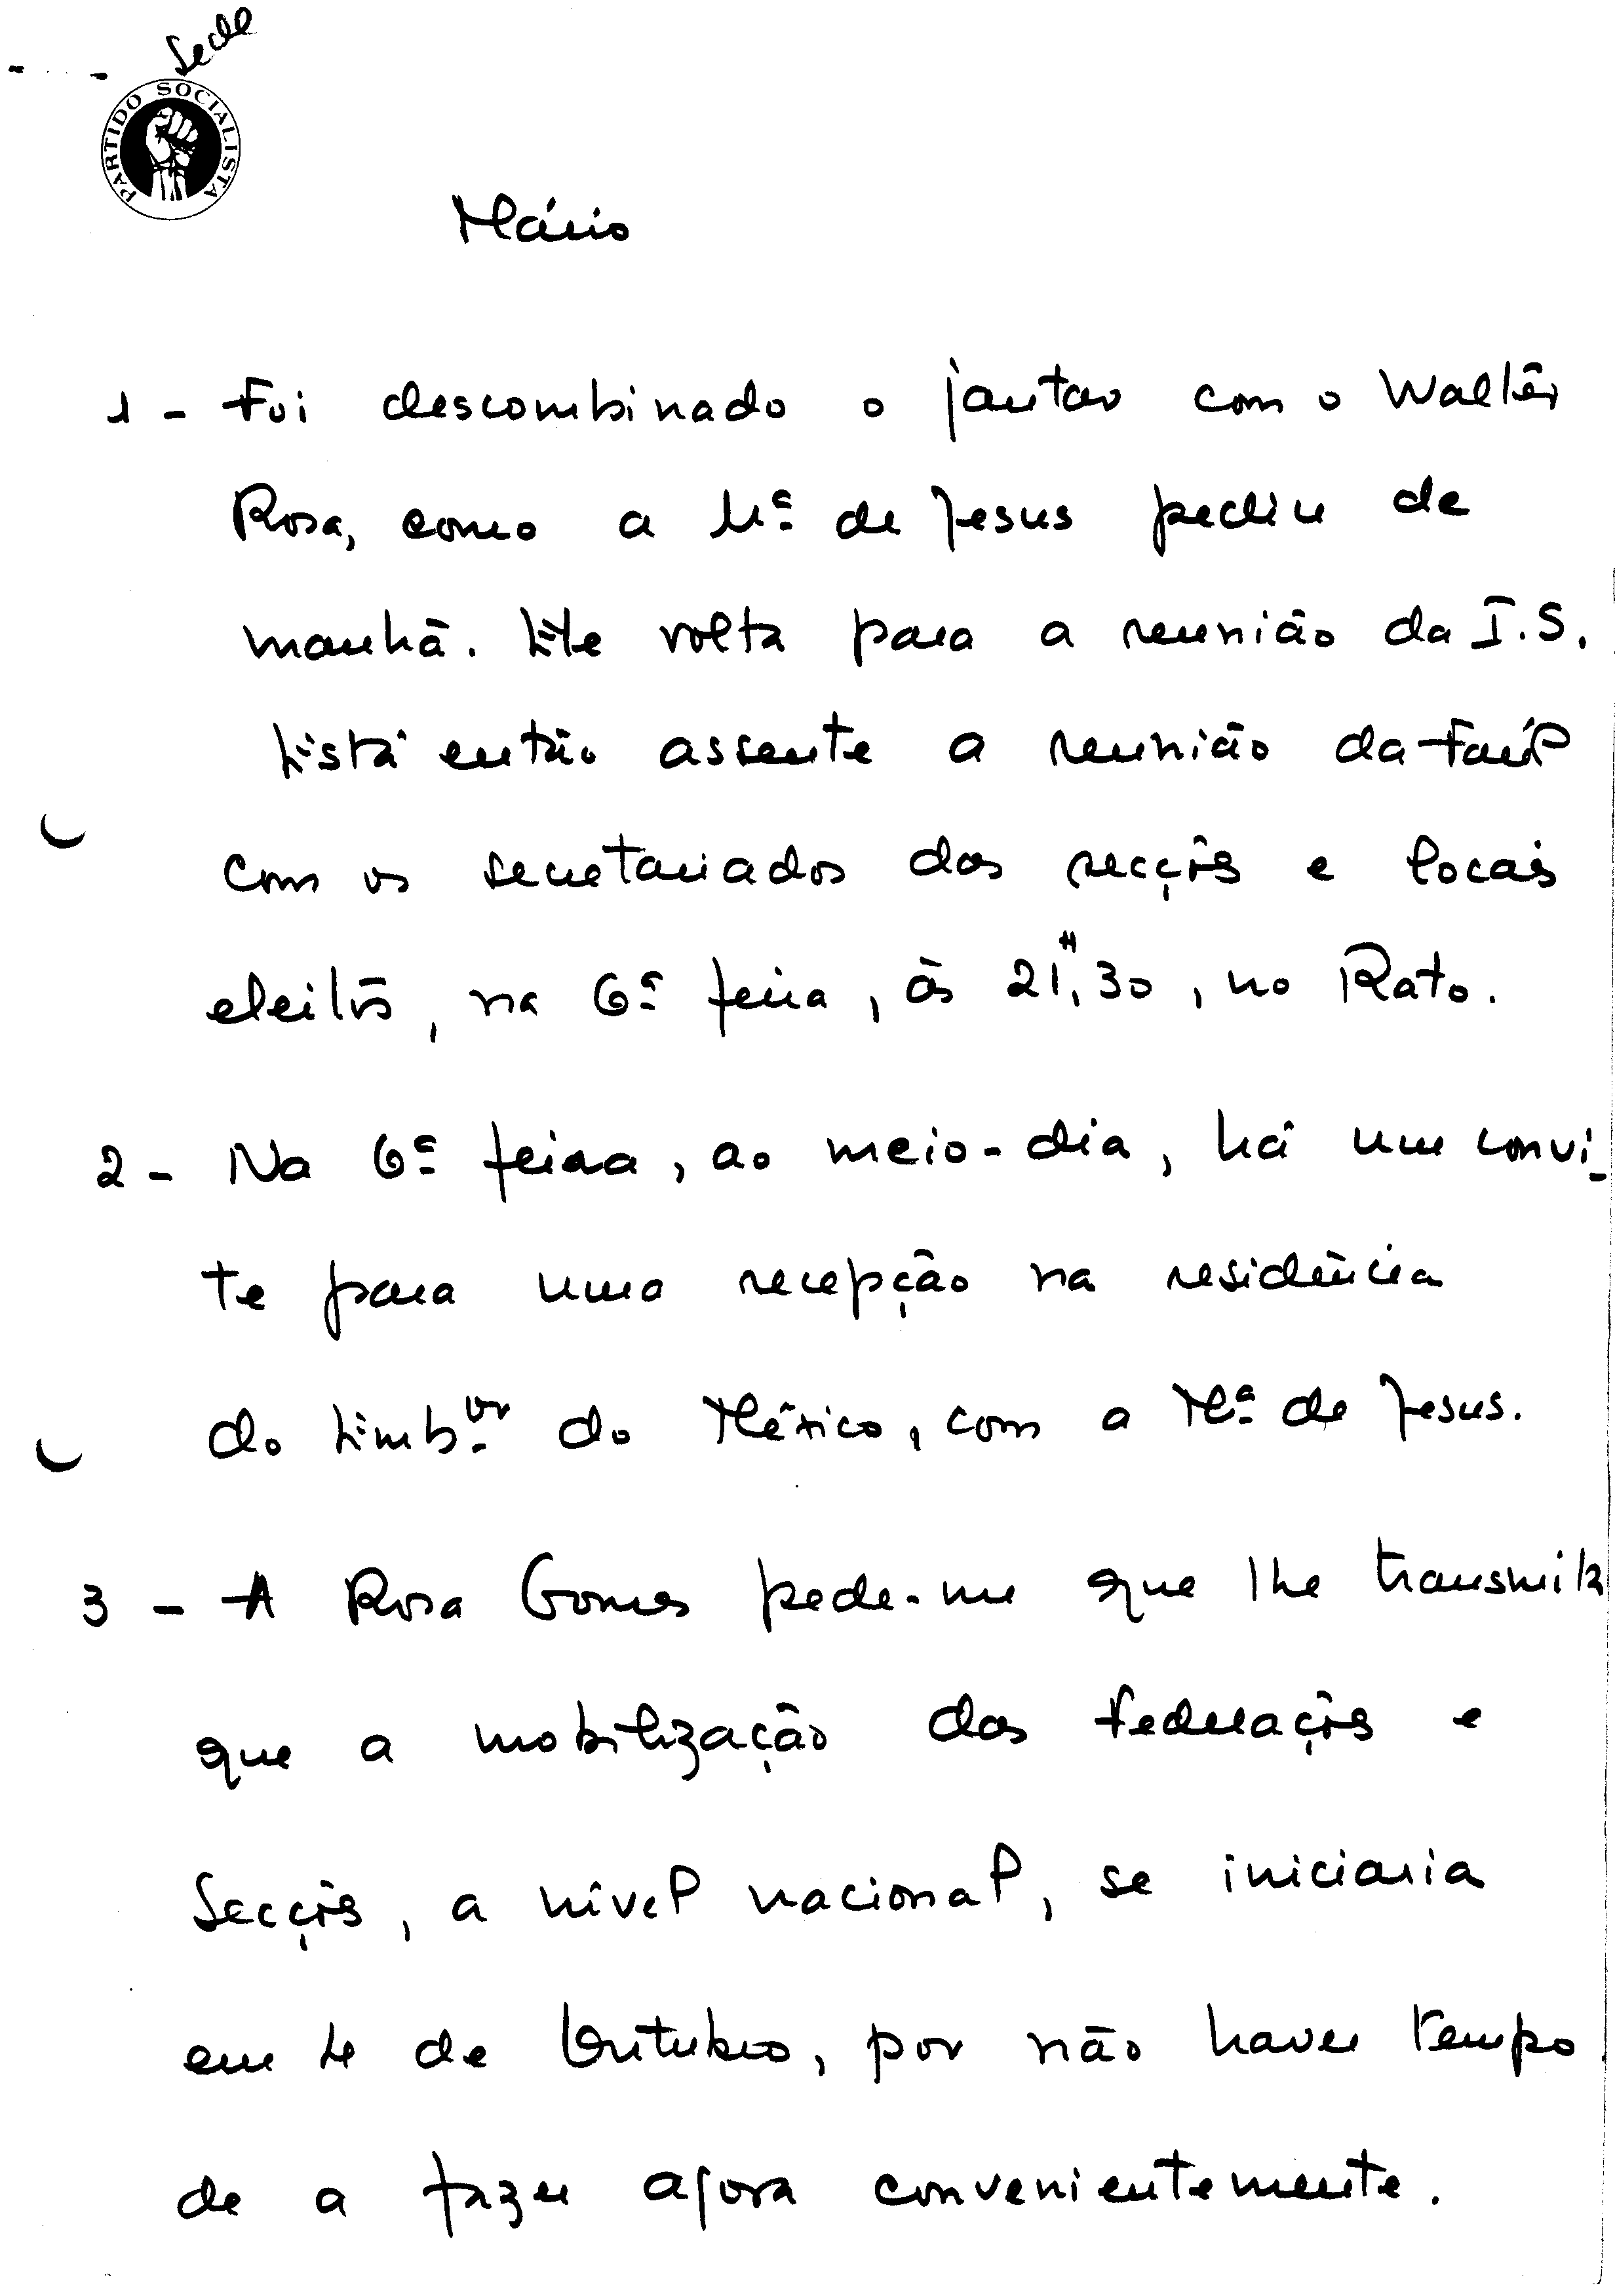 Sede
PARTIDO SOCIALISTA
Mário
1 - Foi descombinado o jantar com o Walter
Rosa, como a Mª de Jesus pediu de
manhã. Ele volta para a reunião da I.S.
Está então assente a reunião da
com os secretariados das secções e locais
eleitos, na 6ª feira, às 21H,30, no Rato.
2 - Na 6ª feira, ao meio-dia, há um convi-
te para uma recepção na residência
do Embor do México, com a Mª de Jesus.
3 - A Rosa Gomes pede-me que lhe transmita
que a mobilização das Federações e
Secções, a nível nacional, se iniciaria
em 4 de Outubro, por não haver tempo
de a fazer agora convenientemente.